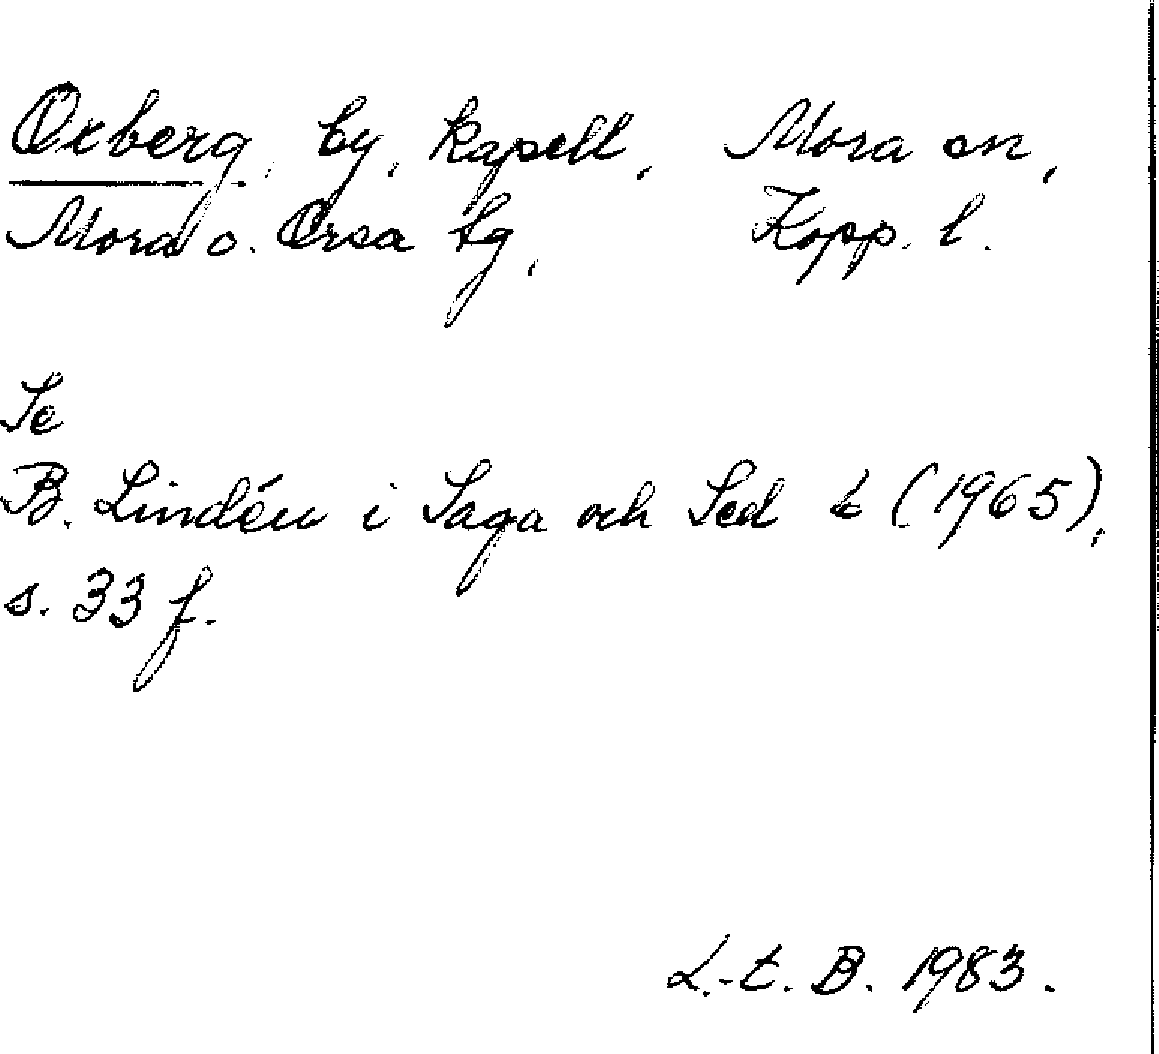 Oxberg, by, kapell, Mora sn,
Mora o. Orsa tg, Kopp. l.
Se
B. Lindén i Saga och Sed 6 (1965),
s. 33 f.
L.-E. B. 1983.